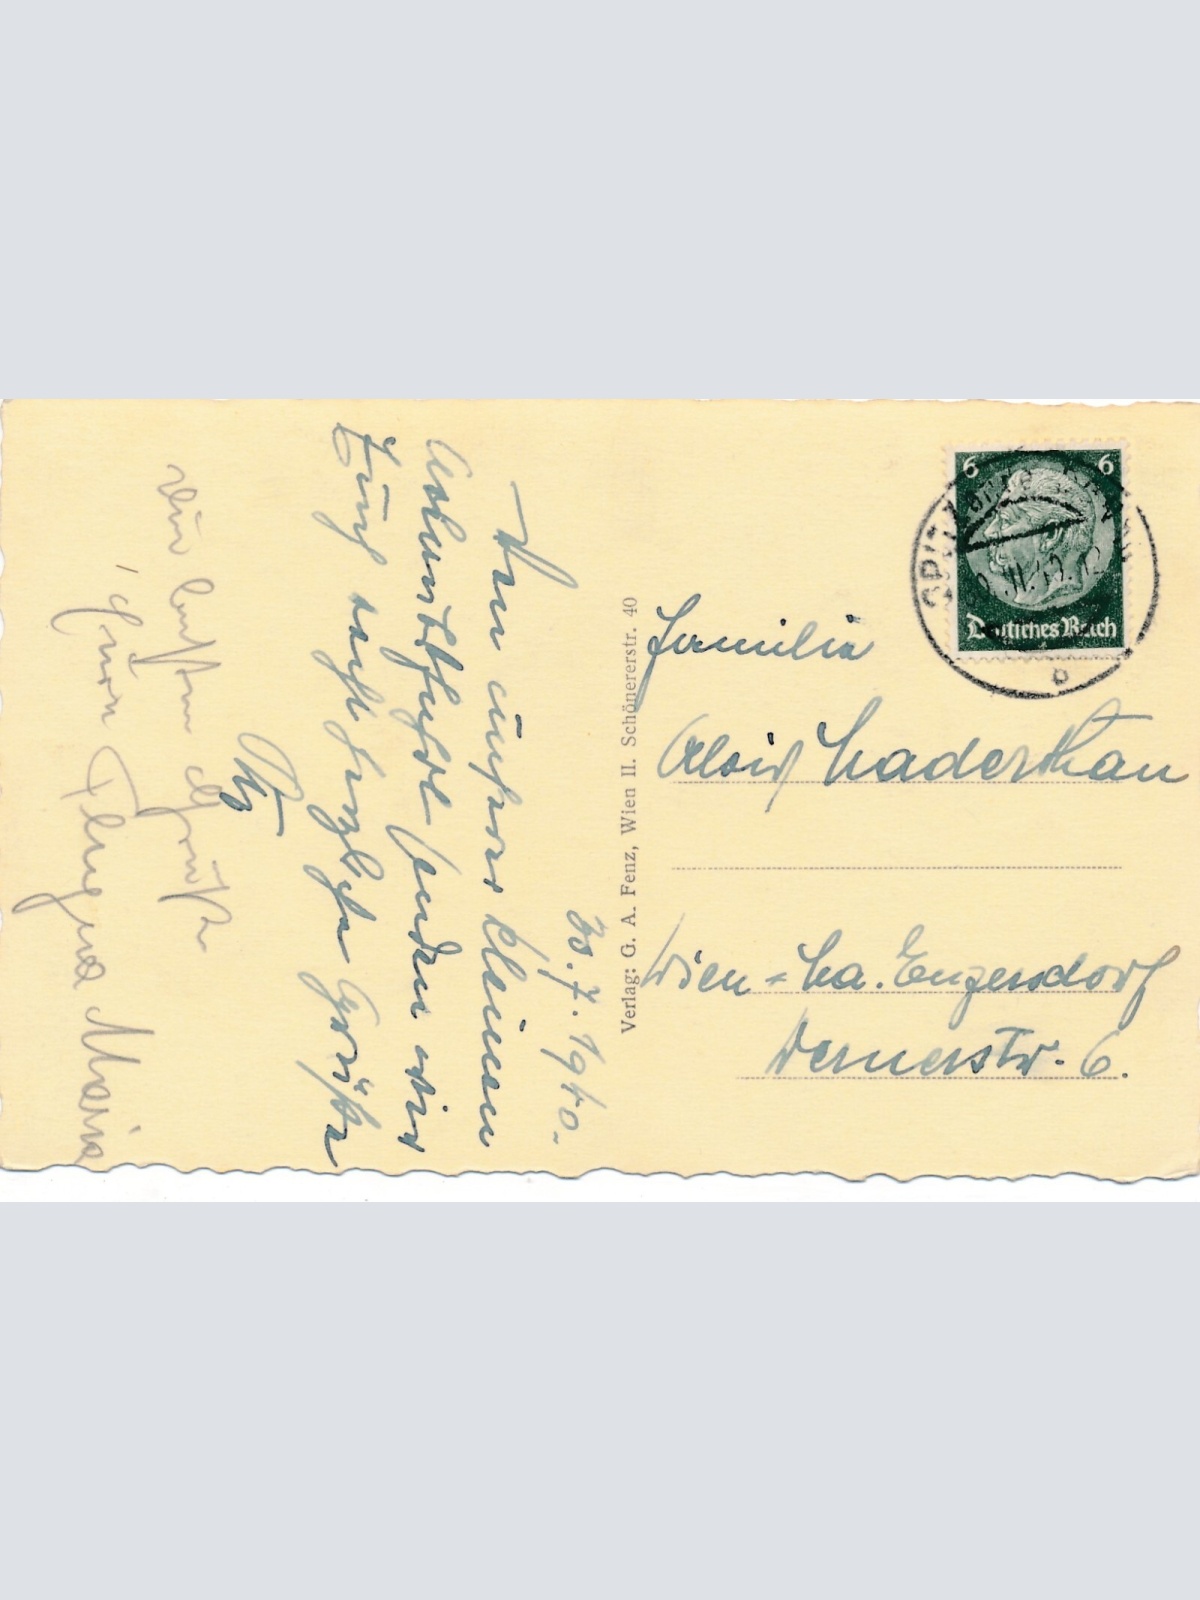 30.7.1940.
Von unserer kleinen
Wachaufahrt senden wir
Euch recht herzliche Grüße
Die besten Grüße
Maria
Verlag: G. A. Fenz, Wien II. Schönererstr. 40
6 6
Deutsches Reich
SPITZ
Familie
Alois Maderthan
Wien - Gr. Enzersdorf
Wernerstr. 6.